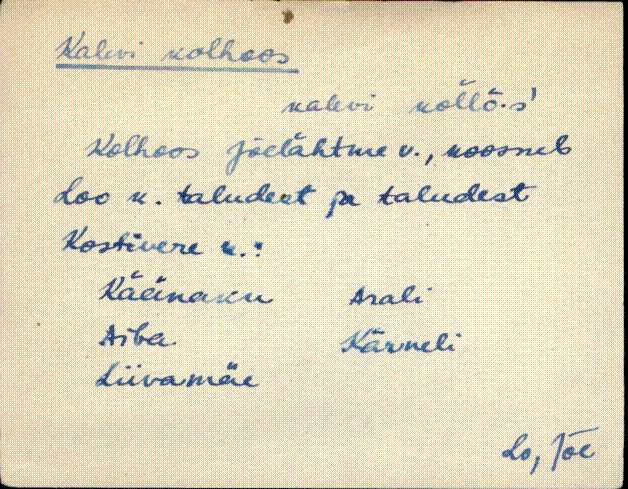 Kalevi kolhoos
kalevi
Kolhoos Jõelähtme v., koosneb
Loo k. taludest ja taludest
Kostivere k.:
Käänaku Arali
Aiba Kärneli
Liivamäe
Lo, Jõe